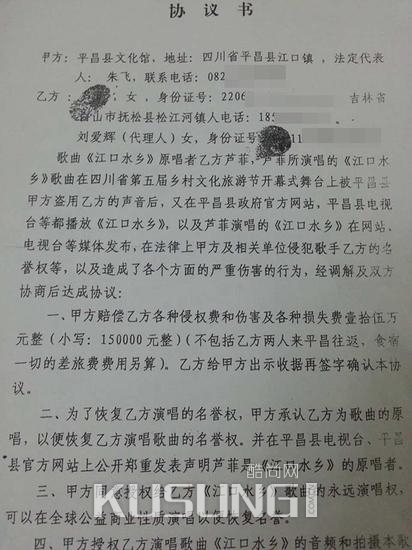 协议书
甲方：平昌县文化馆，地址：四川省平昌县江口镇，法定代表
人：朱飞，联系电话：082
乙方：女，身份证号：2206 吉林省
山市抚松县松江河镇人电话：185
刘爱辉（代理人）女，身份证号 11
歌曲《江口水乡》原唱者乙方芦菲，芦菲所演唱的《江口水
乡》歌曲在四川省第五届乡村文化旅游节开幕式舞台上被平昌县
甲方盗用乙方的声音后，又在平昌县政府官方网站，平昌县电视
台等都播放《江口水乡》，以及芦菲演唱的《江口水乡》在网站、
电视台等媒体发布，在法律上甲方及相关单位侵犯歌手乙方的名
誉权等，以及造成了各个方面的严重伤害的行为，经调解及双方
协商后达成协议：
一、甲方赔偿乙方各种侵权费和伤害及各种损失费壹拾伍万
元整（小写：150000元整）（不包括乙方两人来平昌往返，食宿
一切的差旅费费用另算）。乙方给甲方出示收据再签字确认本协
议。
二、为了恢复乙方演唱的名誉权，甲方承认乙方为歌曲的原
唱，以便恢复乙方演唱歌曲的名誉权。并在平昌县电视台、平昌
县官方网站上公开郑重发表声明芦菲是《江口水乡》的原唱者。
三、甲方同意授权给乙方《江口水乡》歌曲的永远演唱权，
可以在全球公益商业性质演唱以便恢复名誉。
四、甲方授权乙方演唱《江口水乡》的音频和拍摄本歌
酷尚网
KUSUNG